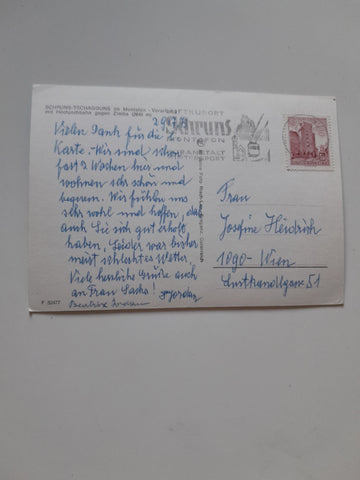 SCHRUNS-TSCHAGGUNS im Montafon - Vorarlberg
mit Hochjochbahn gegen Zimba (2643 m)
LUFTKURORT
Schruns
MONTAFON
KURANSTALT
WINTERSPORT
Vielen Dank für die
Karte. Wir sind schon
fast 3 Wochen hier und
wohnen sehr schön und
bequem. Wir fühlen uns
sehr wohl und hoffen, daß
auch Sie sich gut erholt
haben. Leider war bisher
meist schlechtes Wetter.
Viele herzliche Grüße auch
an Frau
Beatrix
Frau
Josefine Heidrich
1090-Wien
Lustkandlgasse 51
F 52477